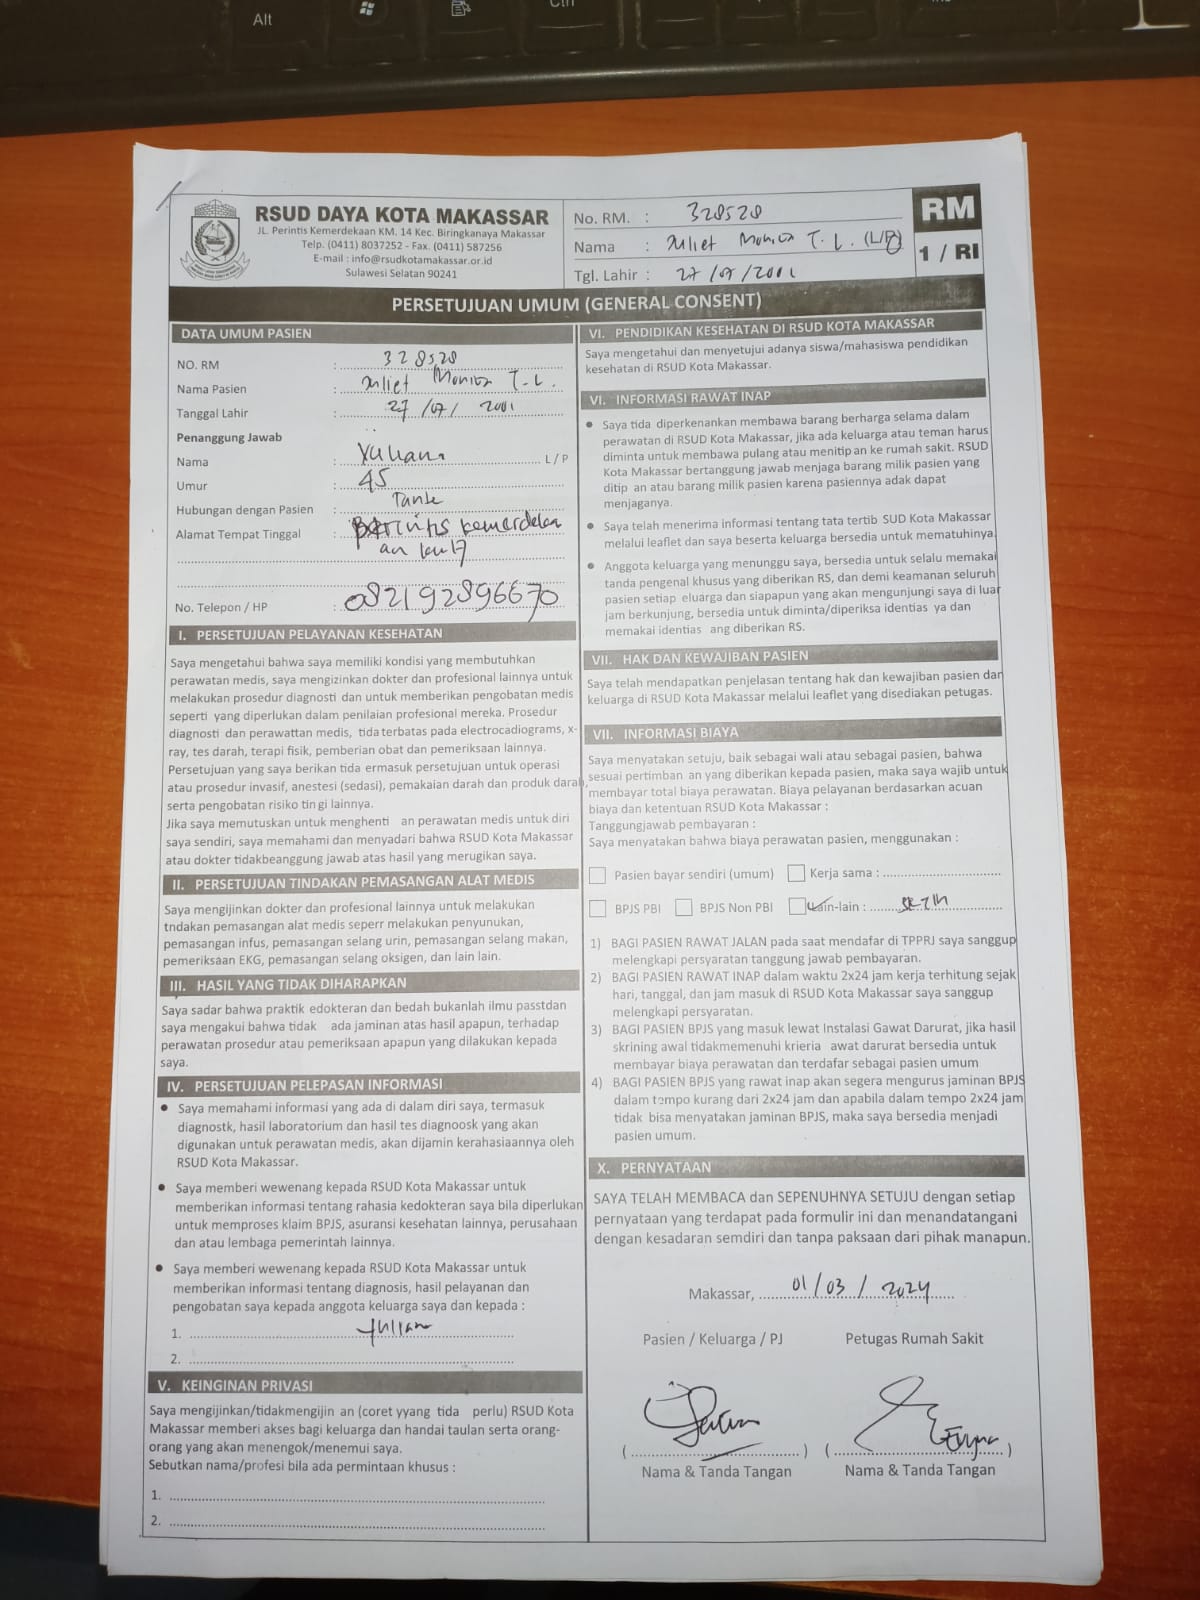 Alt
Ctrl
RSUD DAYA KOTA MAKASSAR
JL. Perintis Kemerdekaan KM. 14 Kec. Biringkanaya Makassar
Telp. (0411) 8037252 - Fax. (0411) 587256
E-mail : info@rsudkotamakassar.or.id
Sulawesi Selatan 90241
No. RM. : 328528
Nama : Juliet Monica T. L. (L/P)
Tgl. Lahir : 27/07/2001
RM
1 / RI
PERSETUJUAN UMUM (GENERAL CONSENT)
DATA UMUM PASIEN
NO. RM : 328528
Nama Pasien : Juliet Monica T.L.
Tanggal Lahir : 27/07/2001
Penanggung Jawab
Nama : Yuliana L / P
Umur : 45
Hubungan dengan Pasien : Tante
Alamat Tempat Tinggal : Perintis kemerdeka
an km 17
No. Telepon / HP : 082192896670
I. PERSETUJUAN PELAYANAN KESEHATAN
Saya mengetahui bahwa saya memiliki kondisi yang membutuhkan
perawatan medis, saya mengizinkan dokter dan profesional lainnya untuk
melakukan prosedur diagnosti dan untuk memberikan pengobatan medis
seperti yang diperlukan dalam penilaian profesional mereka. Prosedur
diagnosti dan perawattan medis, tida terbatas pada electrocadiograms, x-
ray, tes darah, terapi fisik, pemberian obat dan pemeriksaan lainnya.
Persetujuan yang saya berikan tida ermasuk persetujuan untuk operasi
atau prosedur invasif, anestesi (sedasi), pemakaian darah dan produk darah,
serta pengobatan risiko tin gi lainnya.
Jika saya memutuskan untuk menghenti an perawatan medis untuk diri
saya sendiri, saya memahami dan menyadari bahwa RSUD Kota Makassar
atau dokter tidakbeanggung jawab atas hasil yang merugikan saya.
II. PERSETUJUAN TINDAKAN PEMASANGAN ALAT MEDIS
Saya mengijinkan dokter dan profesional lainnya untuk melakukan
tndakan pemasangan alat medis seperr melakukan penyunukan,
pemasangan infus, pemasangan selang urin, pemasangan selang makan,
pemeriksaan EKG, pemasangan selang oksigen, dan lain lain.
III. HASIL YANG TIDAK DIHARAPKAN
Saya sadar bahwa praktik edokteran dan bedah bukanlah ilmu passtdan
saya mengakui bahwa tidak ada jaminan atas hasil apapun, terhadap
perawatan prosedur atau pemeriksaan apapun yang dilakukan kepada
saya.
IV. PERSETUJUAN PELEPASAN INFORMASI
• Saya memahami informasi yang ada di dalam diri saya, termasuk
diagnostk, hasil laboratorium dan hasil tes diagnoosk yang akan
digunakan untuk perawatan medis, akan dijamin kerahasiaannya oleh
RSUD Kota Makassar.
• Saya memberi wewenang kepada RSUD Kota Makassar untuk
memberikan informasi tentang rahasia kedokteran saya bila diperlukan
untuk memproses klaim BPJS, asuransi kesehatan lainnya, perusahaan
dan atau lembaga pemerintah lainnya.
• Saya memberi wewenang kepada RSUD Kota Makassar untuk
memberikan informasi tentang diagnosis, hasil pelayanan dan
pengobatan saya kepada anggota keluarga saya dan kepada :
1. Yuliana
2.
V. KEINGINAN PRIVASI
Saya mengijinkan/tidakmengijin an (coret yyang tida perlu) RSUD Kota
Makassar memberi akses bagi keluarga dan handai taulan serta orang-
orang yang akan menengok/menemui saya.
Sebutkan nama/profesi bila ada permintaan khusus :
1.
2.
VI. PENDIDIKAN KESEHATAN DI RSUD KOTA MAKASSAR
Saya mengetahui dan menyetujui adanya siswa/mahasiswa pendidikan
kesehatan di RSUD Kota Makassar.
VI. INFORMASI RAWAT INAP
• Saya tida diperkenankan membawa barang berharga selama dalam
perawatan di RSUD Kota Makassar, jika ada keluarga atau teman harus
diminta untuk membawa pulang atau menitip an ke rumah sakit. RSUD
Kota Makassar bertanggung jawab menjaga barang milik pasien yang
ditip an atau barang milik pasien karena pasiennya adak dapat
menjaganya.
• Saya telah menerima informasi tentang tata tertib SUD Kota Makassar
melalui leaflet dan saya beserta keluarga bersedia untuk mematuhinya.
• Anggota keluarga yang menunggu saya, bersedia untuk selalu memakai
tanda pengenal khusus yang diberikan RS, dan demi keamanan seluruh
pasien setiap eluarga dan siapapun yang akan mengunjungi saya di luar
jam berkunjung, bersedia untuk diminta/diperiksa identias ya dan
memakai identias ang diberikan RS.
VII. HAK DAN KEWAJIBAN PASIEN
Saya telah mendapatkan penjelasan tentang hak dan kewajiban pasien dan
keluarga di RSUD Kota Makassar melalui leaflet yang disediakan petugas.
VII. INFORMASI BIAYA
Saya menyatakan setuju, baik sebagai wali atau sebagai pasien, bahwa
sesuai pertimban an yang diberikan kepada pasien, maka saya wajib untuk
membayar total biaya perawatan. Biaya pelayanan berdasarkan acuan
biaya dan ketentuan RSUD Kota Makassar :
Tanggungjawab pembayaran :
Saya menyatakan bahwa biaya perawatan pasien, menggunakan :
Pasien bayar sendiri (umum) Kerja sama :
BPJS PBI BPJS Non PBI Lain-lain :
1) BAGI PASIEN RAWAT JALAN pada saat mendafar di TPPRJ saya sanggup
melengkapi persyaratan tanggung jawab pembayaran.
2) BAGI PASIEN RAWAT INAP dalam waktu 2x24 jam kerja terhitung sejak
hari, tanggal, dan jam masuk di RSUD Kota Makassar saya sanggup
melengkapi persyaratan.
3) BAGI PASIEN BPJS yang masuk lewat Instalasi Gawat Darurat, jika hasil
skrining awal tidakmemenuhi krieria awat darurat bersedia untuk
membayar biaya perawatan dan terdafar sebagai pasien umum
4) BAGI PASIEN BPJS yang rawat inap akan segera mengurus jaminan BPJS
dalam tempo kurang dari 2x24 jam dan apabila dalam tempo 2x24 jam
tidak bisa menyatakan jaminan BPJS, maka saya bersedia menjadi
pasien umum.
X. PERNYATAAN
SAYA TELAH MEMBACA dan SEPENUHNYA SETUJU dengan setiap
pernyataan yang terdapat pada formulir ini dan menandatangani
dengan kesadaran semdiri dan tanpa paksaan dari pihak manapun.
Makassar, 01/03/2024
Pasien / Keluarga / PJ Petugas Rumah Sakit
( ) ( )
Nama & Tanda Tangan Nama & Tanda Tangan